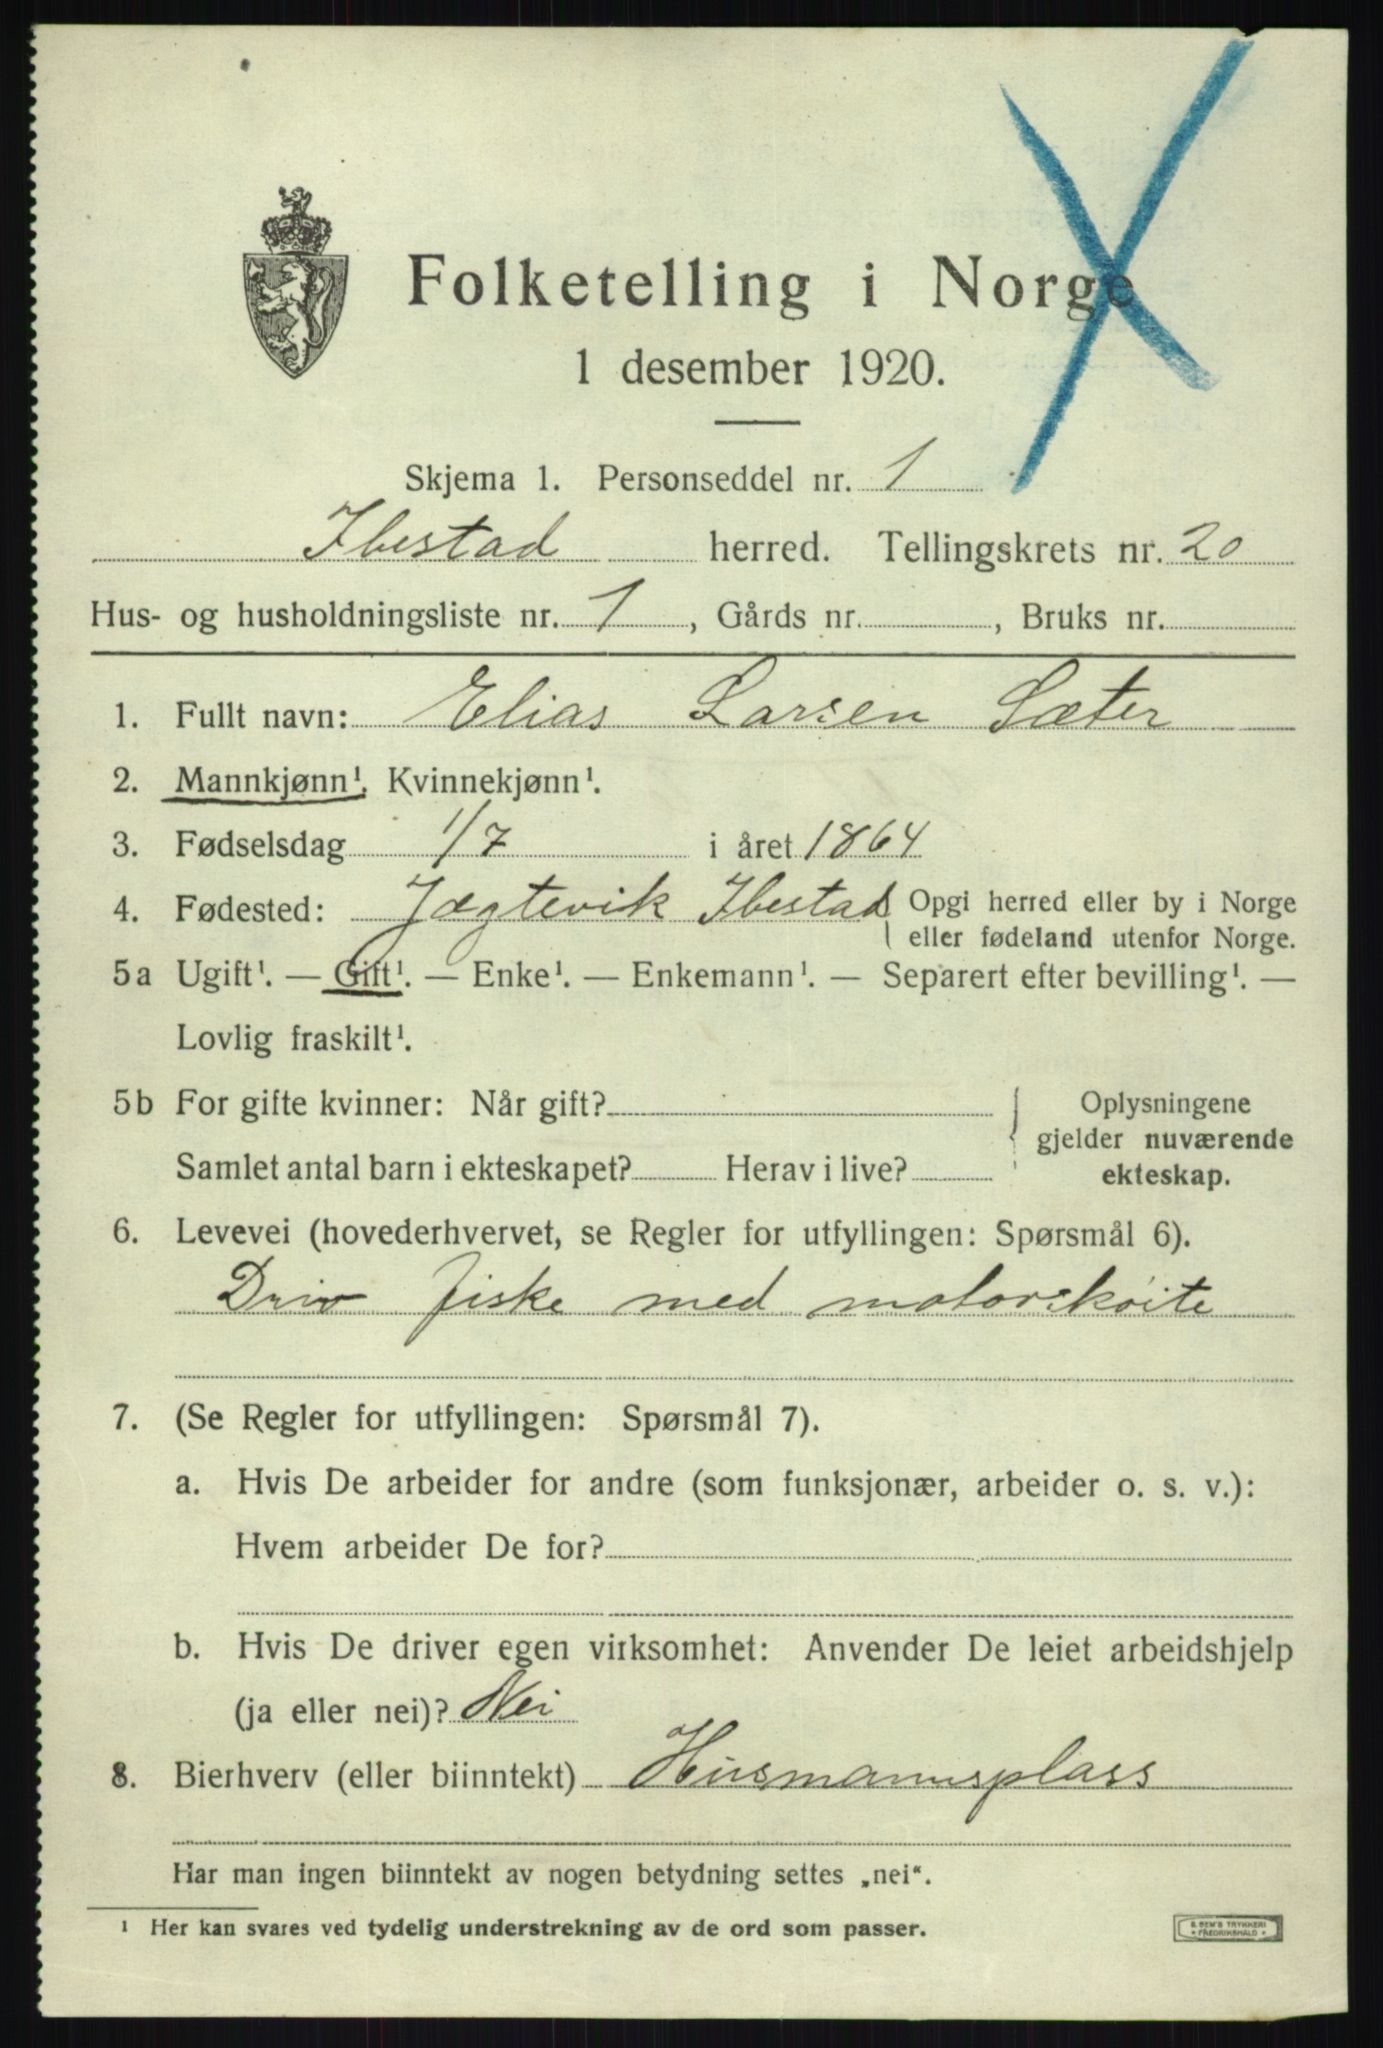 Folketelling i Norge
1 desember 1920.
Skjema 1. Personseddel nr. 1
Ibestad herred. Tellingskrets nr. 20
Hus- og husholdningsliste nr. 1, Gårds nr. , Bruks nr.
1. Fullt navn: Elias Larsen Sæter
2. Mannkjønn¹. Kvinnekjønn¹.
3. Fødselsdag 1/7 i året 1864
4. Fødested: Jægtevik Ibestad Opgi herred eller by i Norge
eller fødeland utenfor Norge.
5a Ugift¹. — Gift¹. — Enke¹. — Enkemann¹. — Separert efter bevilling¹. —
Lovlig fraskilt¹.
5b For gifte kvinner: Når gift? Oplysningene
gjelder nuværende
Samlet antal barn i ekteskapet? Herav i live? ekteskap.
6. Levevei (hovederhvervet, se Regler for utfyllingen: Spørsmål 6).
Driv fiske med motorskøite
7. (Se Regler for utfyllingen: Spørsmål 7).
a. Hvis De arbeider for andre (som funksjonær, arbeider o. s. v.):
Hvem arbeider De for?
b. Hvis De driver egen virksomhet: Anvender De leiet arbeidshjelp
(ja eller nei)? Nei
8. Bierhverv (eller biinntekt) Husmannsplass
Har man ingen biinntekt av nogen betydning settes „nei“.
¹ Her kan svares ved tydelig understrekning av de ord som passer.
E. SEM'S TRYKKERI
* FREDRIKSHALD *